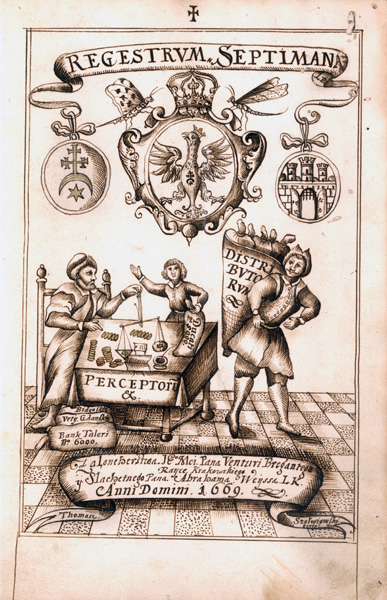 REGESTRVM SEPTIMANA
LE
DISTRI
BVTO
RVM
PERCEPTORU
&.
Bank Taleri
Nº 6000.
Zalontherstwa Je Mci Pana Venturi Breganteÿo
Raÿce Krakowskieÿo
ÿ Slachetneÿo Pana Abrahama Weÿssa. L K
Anni Domini. 1669.
Thomasz